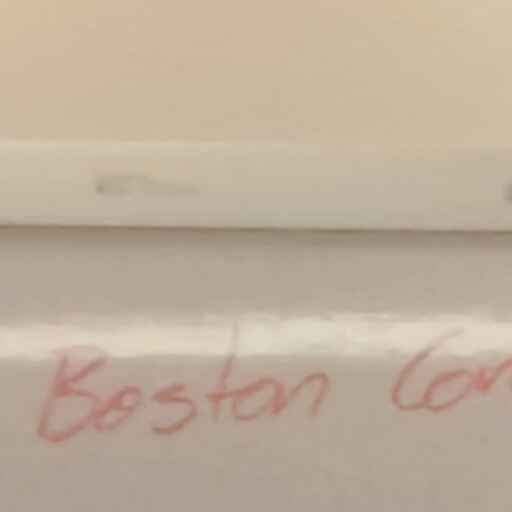 Boston Con